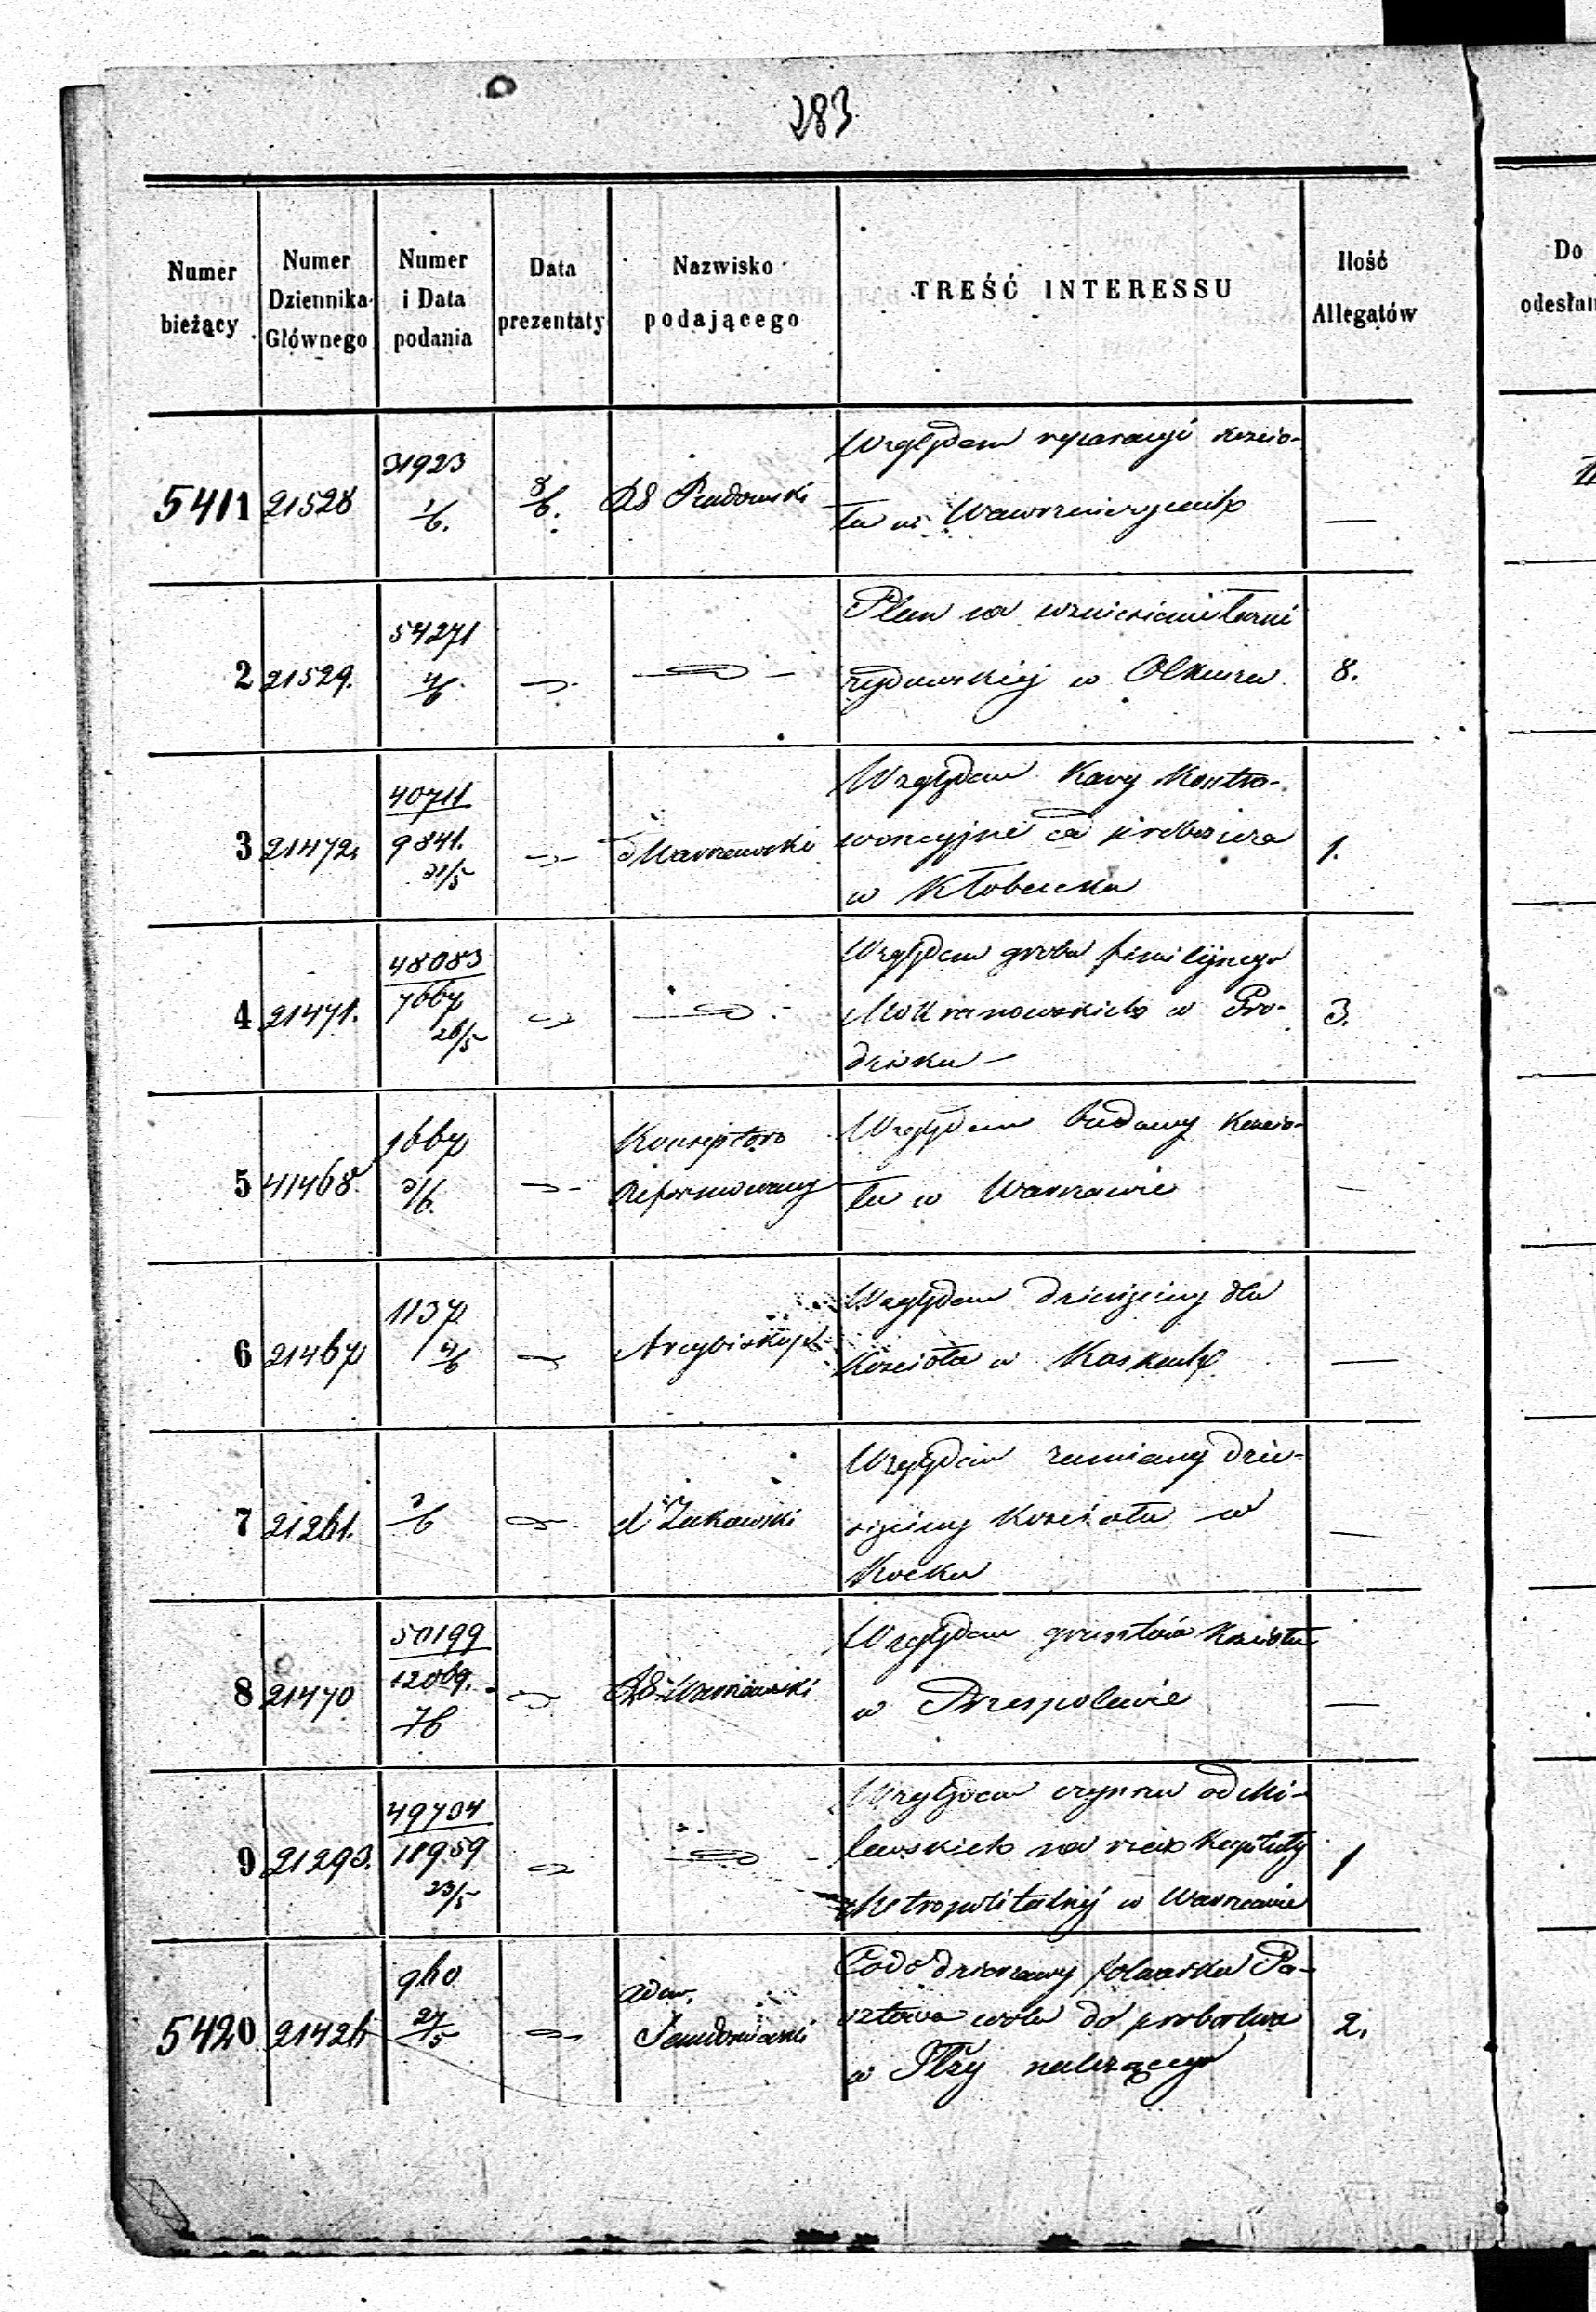 283
Numer bieżący
Numer Dziennika Głównego
Numer i Data podania
Data prezentaty
Nazwisko podającego
TREŚĆ INTERESSU
Ilość Allegatów
Do
odesłan
5411 21528 31923 1/6. 8/6. RG Radomski Względem reparacyi kościo-
ła w Wawrzeńczycach —
2 21529. 54271 4/6 Plan na wzniesienie łaźni
żydowskiej w Olkuszu 8.
3 21472. 40711 9841. 31/5 Warszawski Względem Kary Kontra-
wencyjnej za proboszcza
w Kłobucku 1.
4 21471. 48083 7667 26/5 Względem grobu familijnego
Mokranowskich w Gro-
dzisku — 3.
5 41468. 1667 3/6. Konsystorz
Reformowany Względem budowy kościo-
ła w Warszawie —
6 21467 1137 4/6 Arcybiskup Względem dziesięciny dla
Kościoła w Kaskach —
7 21261. 3/6 Żukowski Względem zamiany dzie-
sięciny Kościoła w
Kocku —
8 21470 50199 12069. 7/6 RG Warszawski Względem gruntów Kościoła
w Przespolewie —
9 21293. 49704 11959 23/5 Względem czynszu od Mi-
lewskich na rzecz Kapituły
Metropolitalnej w Warszawie 1
5420 21426 960 27/5 Adm.
Sandomierski Co do dzierżawy folwarku Pa-
kosztowa wola do probostwa
w Iłży należącego 2.